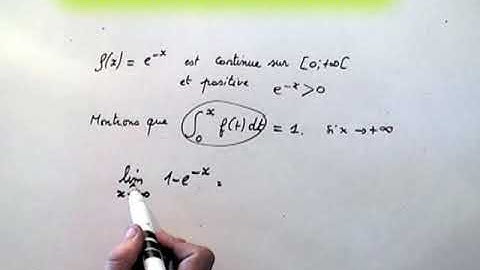 f(x) = e^{-x} est continue sur [0;+∞[
et positive e^{-x}>0
Montrons que ∫_0^x f(t)dt = 1. si x → +∞
lim 1-e^{-x} =